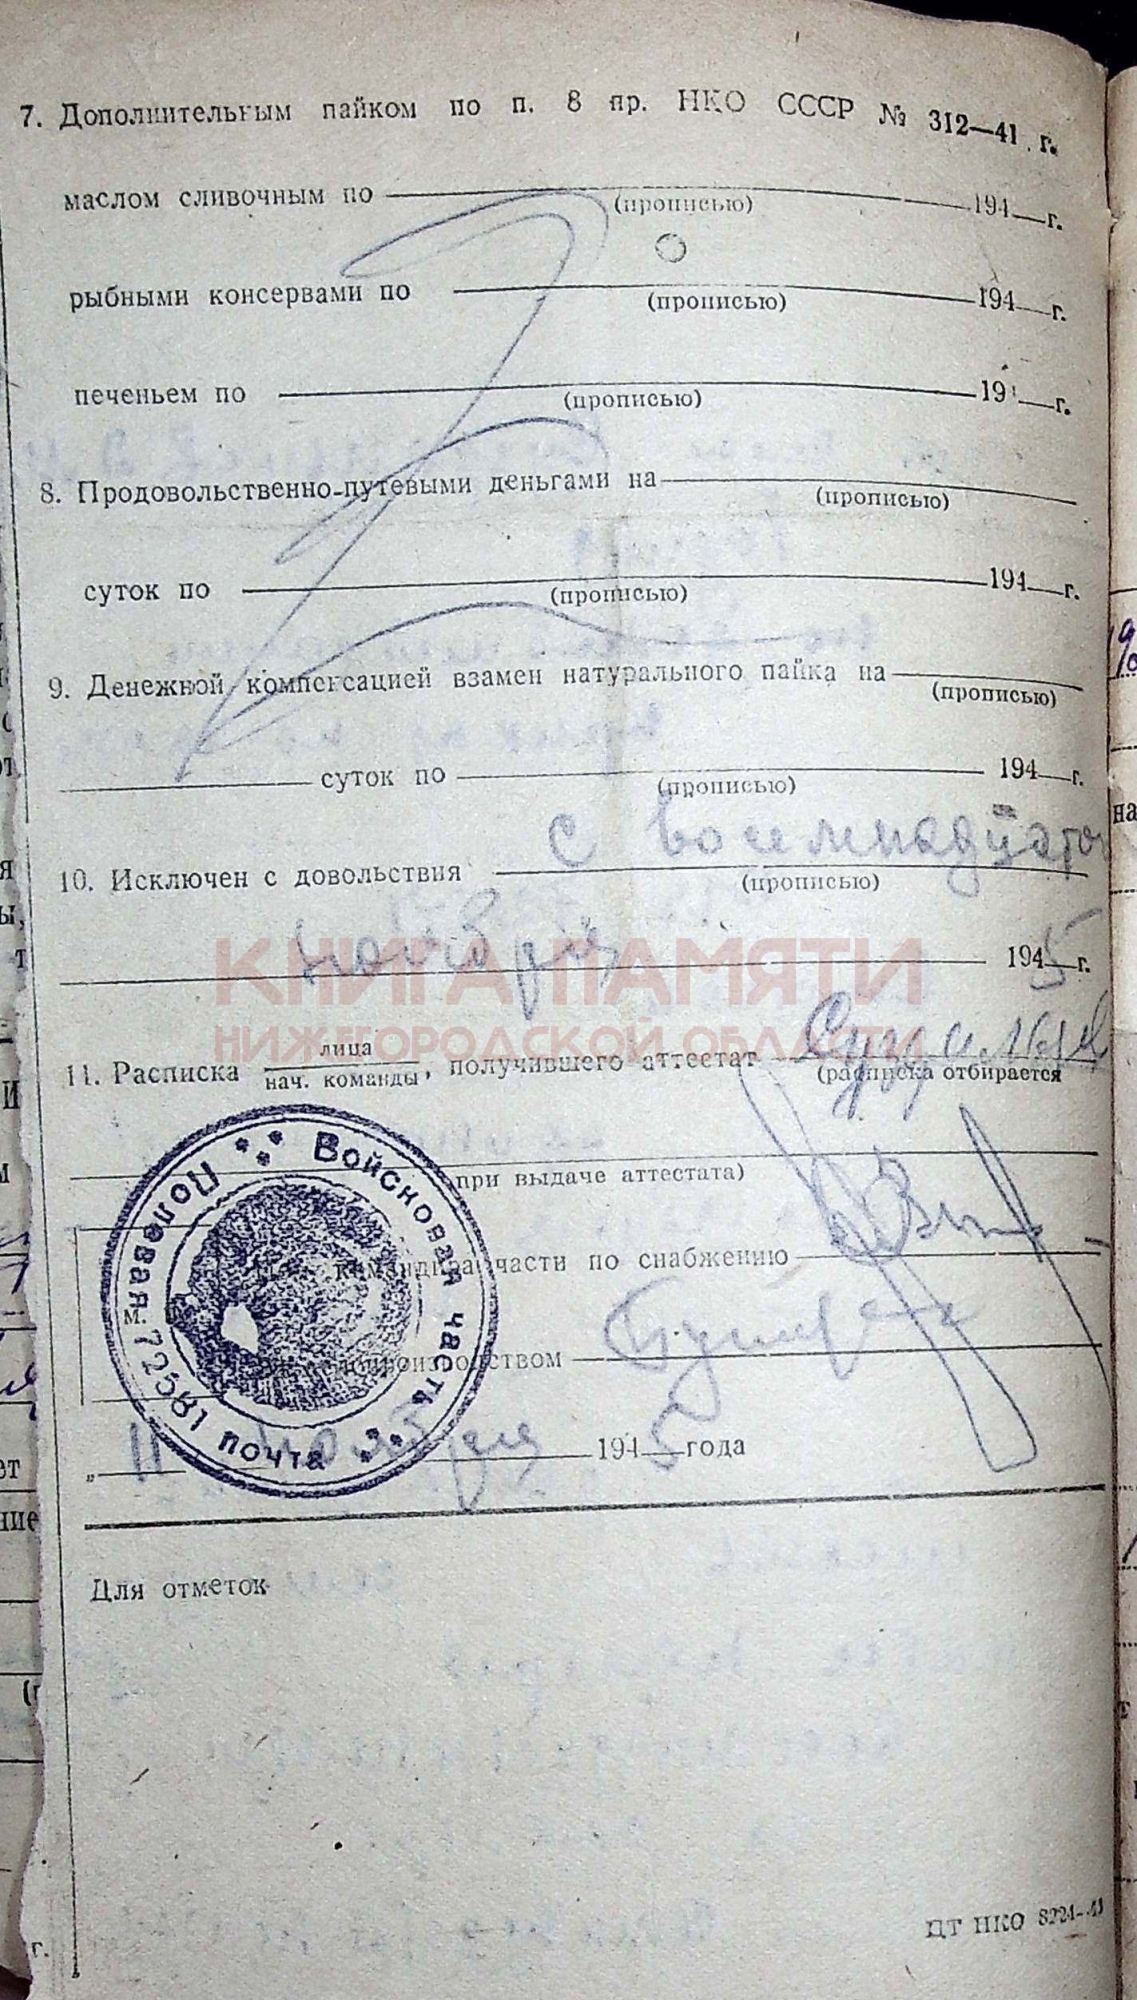 7. Дополнительным пайком по п. 8 пр. НКО СССР № 312—41 г.
маслом сливочным по 194 г.
(прописью)
рыбными консервами по 194 г.
(прописью)
печеньем по 194 г.
(прописью)
8. Продовольственно-путевыми деньгами на
(прописью)
суток по 194 г.
(прописью)
9. Денежной компенсацией взамен натурального пайка на
(прописью)
суток по 194 г.
(прописью)
с восемнадцатого
10. Исключен с довольствия
(прописью)
ноября 1945 г.
КНИГА ПАМЯТИ
НИЖЕГОРОДСКОЙ ОБЛАСТИ
11. Расписка лица
нач. команды, получившего аттестат
(расписка отбирается
при выдаче аттестата)
командира части по снабжению
М.
производством
„11 ноября 1945 года
Войсковая часть
Полевая почта 72581
Для отметок
ЦТ НКО